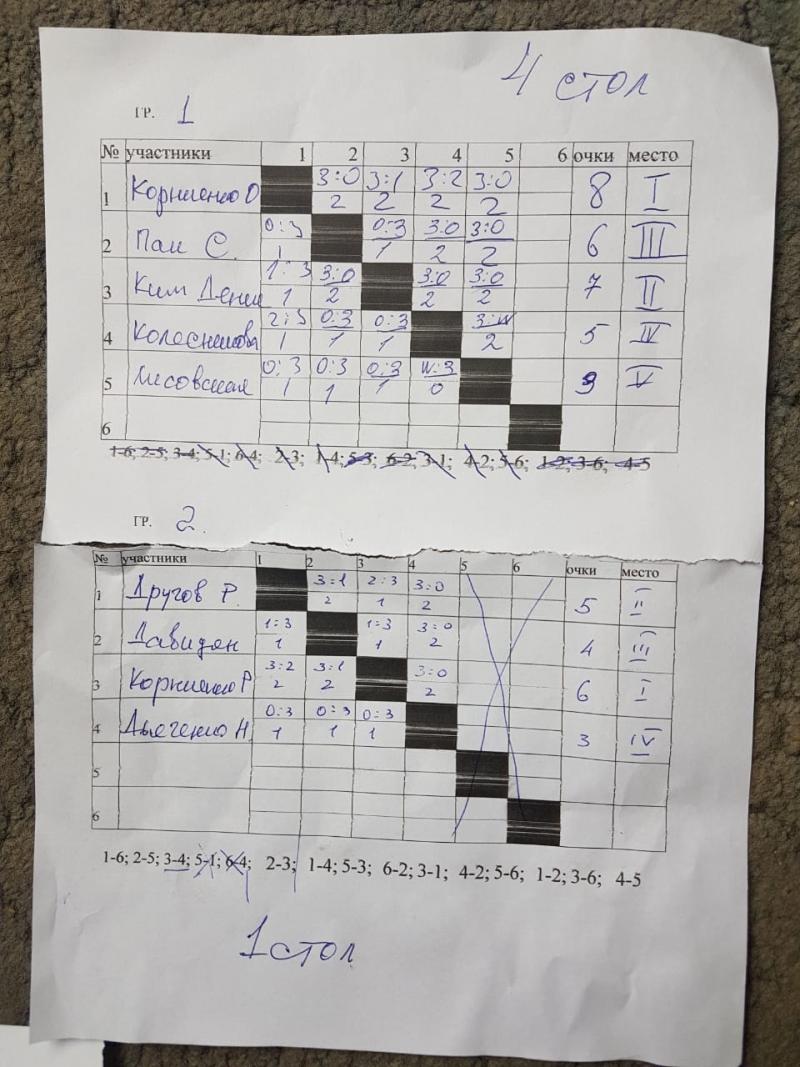 4 стол
гр. 1
№ участники 1 2 3 4 5 6 очки место
1 Корниенко О 3:0 3:1 3:2 3:0 8 I
2 2 2 2
2 Пак С. 0:3 0:3 3:0 3:0 6 III
1 1 2 2
3 Ким Денис 1:3 3:0 3:0 3:0 7 II
1 2 2 2
4 Колесникова 2:3 0:3 0:3 3:W 5 IV
1 1 1 2
5 Лисовская 0:3 0:3 0:3 W:3 3 V
1 1 1 0
6
1-6; 2-5; 3-4; 5-1; 6-4; 2-3; 1-4; 5-3; 6-2; 3-1; 4-2; 5-6; 1-2; 3-6; 4-5
гр. 2.
№ участники 1 2 3 4 5 6 очки место
1 Другов Р. 3:1 2:3 3:0 5 II
2 1 2
2 Давидян 1:3 1:3 3:0 4 III
1 1 2
3 Корниенко Р 3:2 3:1 3:0 6 I
2 2 2
4 Дьяченко Н. 0:3 0:3 0:3 3 IV
1 1 1
5
6
1-6; 2-5; 3-4; 5-1; 6-4; 2-3; 1-4; 5-3; 6-2; 3-1; 4-2; 5-6; 1-2; 3-6; 4-5
1 стол